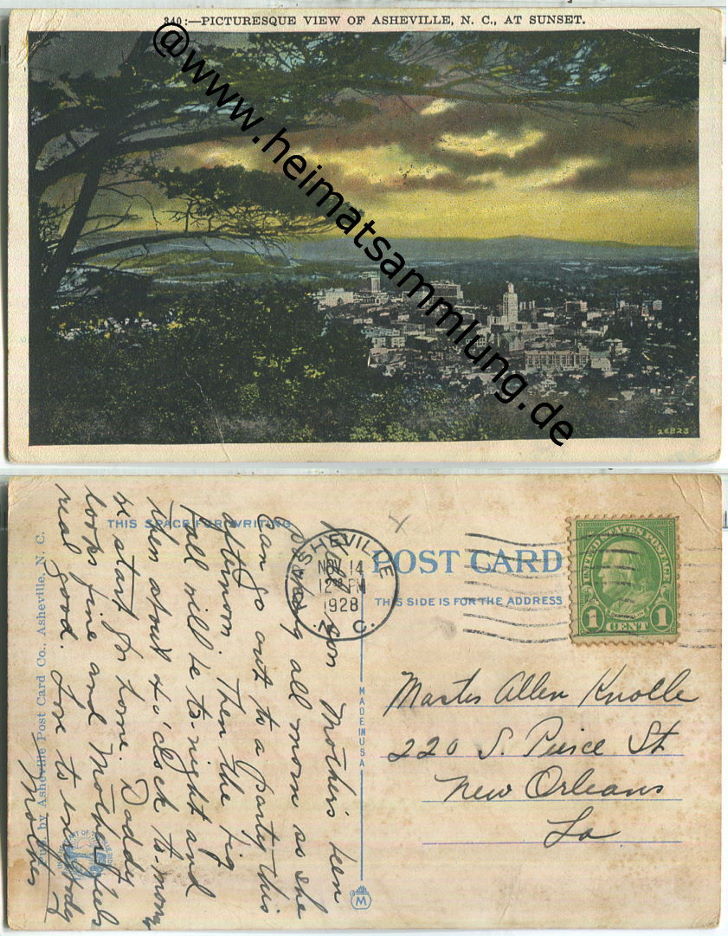 340:—PICTURESQUE VIEW OF ASHEVILLE, N. C., AT SUNSET.
@www.heimatsammlung.de
26823
THIS SPACE FOR WRITING
POST CARD
THIS SIDE IS FOR THE ADDRESS
ASHEVILLE
NOV 14
12 PM
1928
N. C.
UNITED STATES POSTAGE
1 CENT 1
Master Allen Knolle
220 S. Pierce St
New Orleans
La
MADE IN USA
M
son Mother's been
all morn as she
Can go out to a party this
afternoon. Then the big
ball will be to-night and
then about 4 o'clock to-morrow
we start for home. Daddy
looks fine and Mother feels
real good. Love to everybody
Mother
Pub. by Asheville Post Card Co., Asheville, N. C.